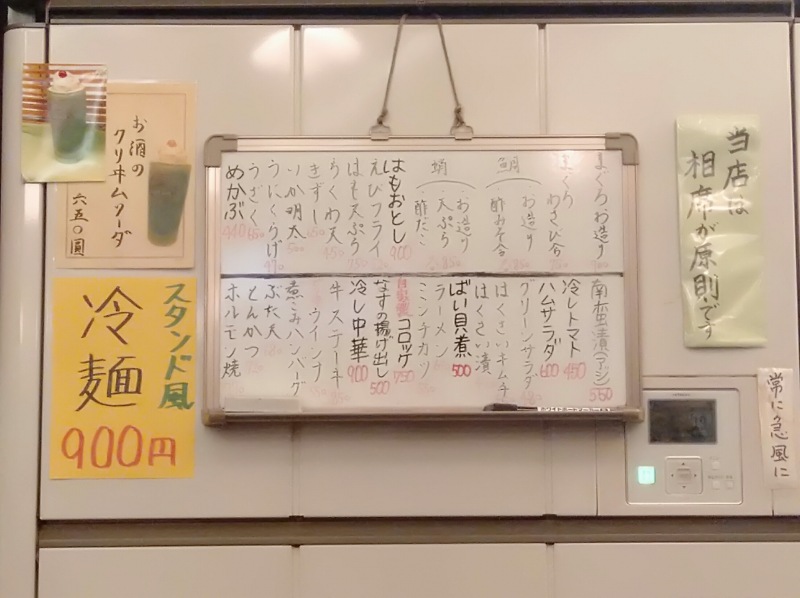 お酒の
クリームソーダ
六五〇圓
スタンド風
冷麺
900円
まぐろお造り
まぐろわさび合
鯛
お造り
酢みそ合
蛸
お造り
天ぷら
酢だこ
はもおとし 900
えびフライ
はも天ぷら 750
ちくわ天 450
きずし
いか明太 500
うにくらげ
うざく
めかぶ 440
南蛮漬(アジ) 550
冷しトマト 450
ハムサラダ 600
グリーンサラダ
はくさいキムチ
はくさい漬
ばい貝煮 500
ラーメン
ミンチカツ
自家製コロッケ 750
なすの揚げ出し 500
冷し中華 900
牛ステーキ
ウインナ
煮こみハンバーグ
ぶた天
とんかつ
ホルモン焼
当店は
相席が原則です
常に急風に